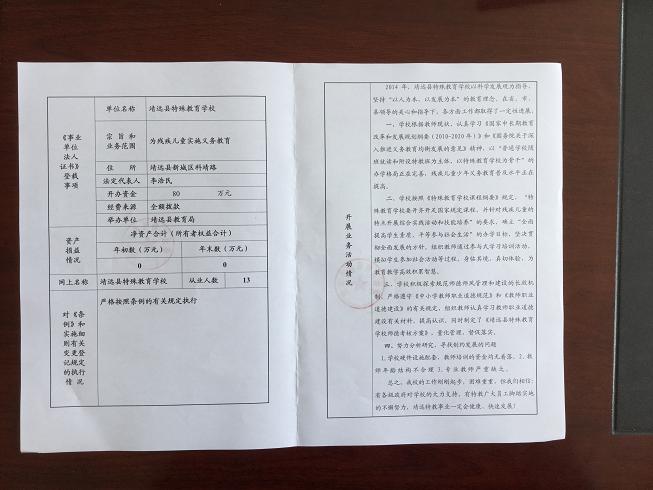 《事业
单位
法人
证书》
登载
事项
单位名称 靖远县特殊教育学校
宗旨和
业务范围
为残疾儿童实施义务教育
住所 靖远县新城区科靖路
法定代表人 李浩民
开办资金 80 万元
经费来源 全额拨款
举办单位 靖远县教育局
资产
损益
情况
净资产合计（所有者权益合计）
年初数（万元） 年末数（万元）
0 0
网上名称 靖远县特殊教育学校 从业人数 13
对《条
例》和
实施细
则有关
变更登
记规定
的执行
情况
严格按照条例的有关规定执行
开展业务活动情况
2014 年，靖远县特殊教育学校以科学发展观为指导，
坚持“以人为本，以发展为本”的教育理念，在省、市、
县领导的关心和指导下，各方面工作都取得了一定性进展。
一、学校根据教师现状，认真学习《国家中长期教育
改革和发展规划纲要（2010-2020 年）》和《国务院关于深
入推进义务教育均衡发展的意见》精神，以“普通学校随
班就读和附设特教班为主体，以特殊教育学校为骨干”的
办学格局正在完善，残疾儿童少年义务教育普及水平正在
提高。
二、学校按照《特殊教育学校课程纲要》规定，“特
殊教育学校要开齐开足国家规定课程，并针对残疾儿童的
特点开展综合实践活动和技能培养”的要求，确立“全面
提高学生素质，平等参与社会生活”的办学目标，坚决贯
彻全面发展的方针，组织教师通过参与式学习培训活动，
模拟学生参加社会活动等过程，身临其境，真切体验，为
教育教学高效积累智慧。
三、学校积极探索规范师德师风管理和建设的长效机
制，严格遵守《中小学教师职业道德规范》和《教师职业
道德建设》的有关规定，组织教师认真学习教师职业道德
建设有关材料，提高认识，同时制定了《靖远县特殊教育
学校师德考核方案》，量化管理，督促落实。
四、努力分析研究，寻找制约发展的问题
1.学校硬件设施配套，教师培训的资金均无着落。2.教
师年龄结构不合理 3.专业教师严重缺乏。
总之，我校的工作刚刚起步，困难重重，但我们相信：
有各级政府对学校的大力支持，有特教广大员工脚踏实地
的不懈努力，靖远特教事业一定会健康、快速发展！